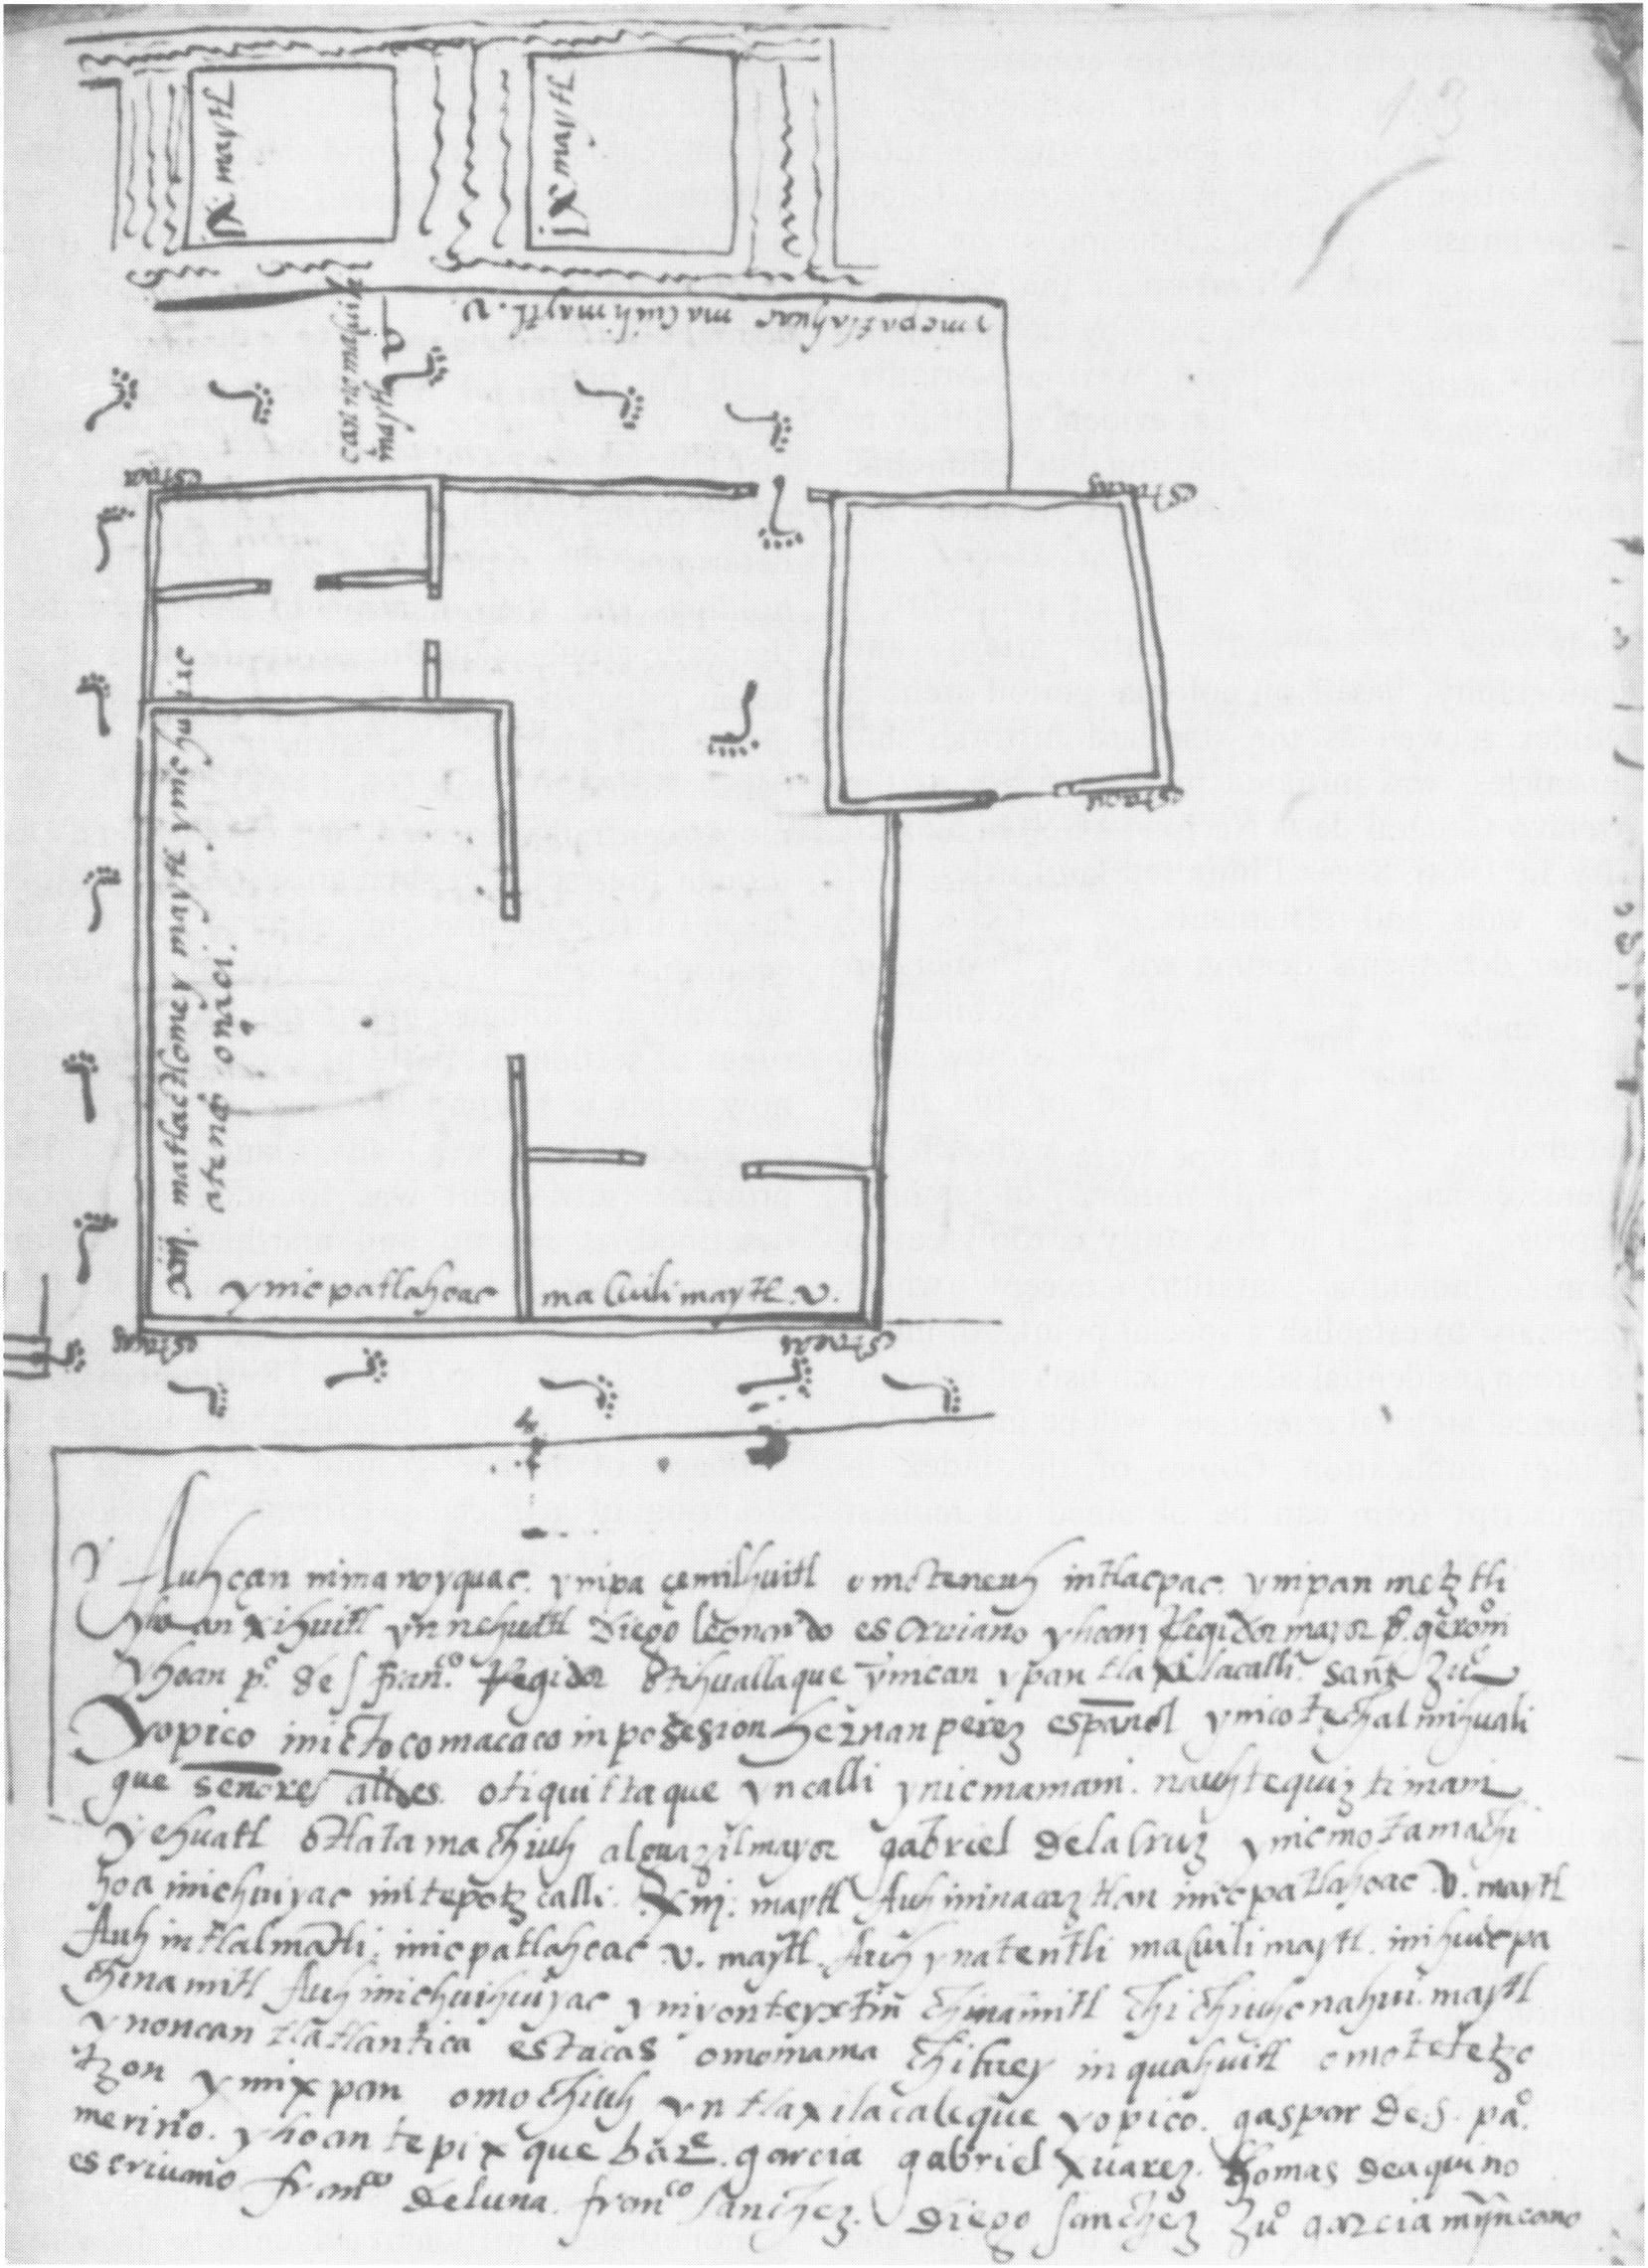 13
ix. maytl
ix maytl
ynicpatlahuac macuili maytl. v.
can no nahui
maytl
estacas
estacas
estacas
xiij. matlactlomey maytl ynichuiac
atenco onaci.
ynicpatlahoac macuili maytl. v.
estacas
estacas
Auh çan nima noyquac. ynipa çemilhuitl omoteneuh intlacpac. ynipan metztli
yhoan xihuitl yn nehuatl Diego leonardo escriuano yhoan Regidor mayor p. gerom̄o
yhoan p.º de s fran.co Regidor otihuallaque ynican ypan tlaxilacalli. sant Juº
Yopico inic tocomacaco inposesion hernan perez español ynicotechalmihuali
que senores alldes. otiquittaque yncalli ynicmamani. nauhtequiztimani
yehuatl otlatamachiuh alguazilmayor gabriel delacruz ynicmotamachi
hoa inichuiyac initepotzcalli. xiij. maytl Auh ininacaztlan inicpatlahoac .v. maytl
Auh intlalmātli. inicpatlahoac .v. maytl. Auh ynatentli macuilimaytl. inihuicpa
chinamitl Auh inichuihuiyac yniyonteyxtin chinamitl chichiuhcnahui. maytl
ynoncan tlatlantica estacas omomama chicuey inquahuitl omotetetzo
tzon ymixpan omochiuh yn tlaxilacaleque yopico. gaspar de. s. paº.
merino. yhoan tepixque bare. garcia gabriel xuarez. thomas deaquino
escriuano franco deluna. franco sanchez. Diego sanchez Juº garcia